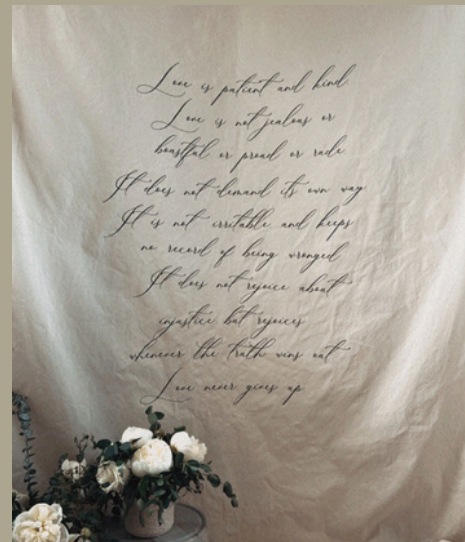 Love is patient and kind
Love is not jealous or
boastful or proud or rude
It does not demand its own way
It is not irritable and keeps
no record of being wronged
It does not rejoice about
injustice but rejoices
whenever the truth wins out
Love never gives up